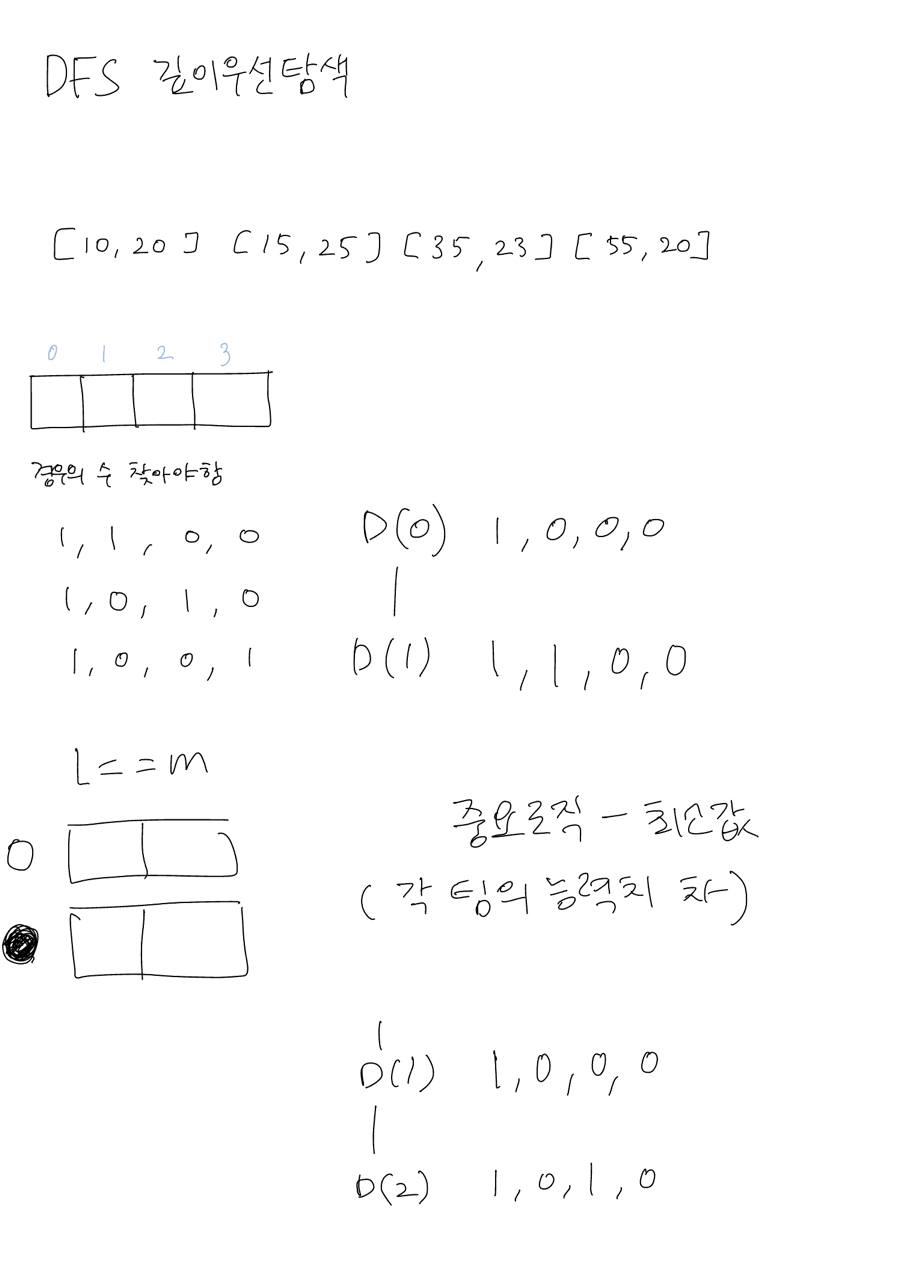 DFS 깊이우선탐색
[10,20] [15,25] [35,23] [55,20]
0 1 2 3
경우의 수 찾아야함
1, 1, 0, 0
1, 0, 1, 0
1, 0, 0, 1
D(0) 1, 0, 0, 0
D(1) 1, 1, 0, 0
L == m
중요로직 - 최소값
(각 팀의 능력치 차)
D(1) 1, 0, 0, 0
D(2) 1, 0, 1, 0